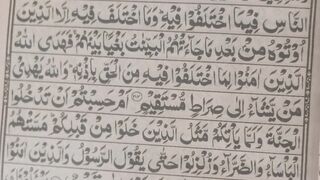 النَّاسِ فِيْمَا اخْتَلَفُوْا فِيْهِ ؕ وَمَا اخْتَلَفَ فِيْهِ اِلَّا الَّذِيْنَ
اُوْتُوْهُ مِنْۢ بَعْدِ مَا جَآءَتْهُمُ الْبَيِّنٰتُ بَغْيًۢا بَيْنَهُمْ ۚ فَهَدَى اللّٰهُ
الَّذِيْنَ اٰمَنُوْا لِمَا اخْتَلَفُوْا فِيْهِ مِنَ الْحَقِّ بِاِذْنِهٖ ؕ وَاللّٰهُ يَهْدِيْ
مَنْ يَّشَآءُ اِلٰى صِرَاطٍ مُّسْتَقِيْمٍ اَمْ حَسِبْتُمْ اَنْ تَدْخُلُوا
الْجَنَّةَ وَلَمَّا يَاْتِكُمْ مَّثَلُ الَّذِيْنَ خَلَوْا مِنْ قَبْلِكُمْ ؕ مَسَّتْهُمُ
الْبَاْسَآءُ وَالضَّرَّآءُ وَزُلْزِلُوْا حَتّٰى يَقُوْلَ الرَّسُوْلُ وَالَّذِيْنَ اٰمَنُوْا